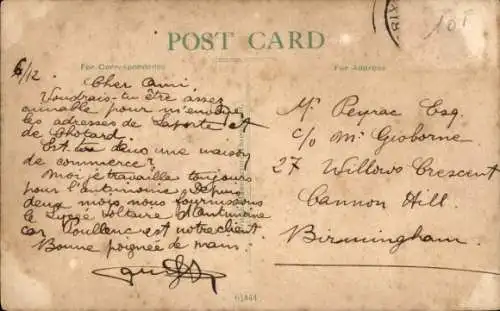 POST CARD
For Correspondence
For Address
10F
6/12
Cher Ami.
Voudrais-tu être assez
aimable pour m'env
les adresses de Laporte et
de Chotard.
Est dans une maison
de commerce?
Moi je travaille toujours
pour l'antimoine. Depuis
deux mois, nous fournissons
le Voltaire d'Antimoine
car Poullenc est notre client.
Bonne poignée de main.
Mr Peyrac Esq
c/o Mr Gisborne
27 Willows Crescent
Cannon Hill.
Birmingham.
61844